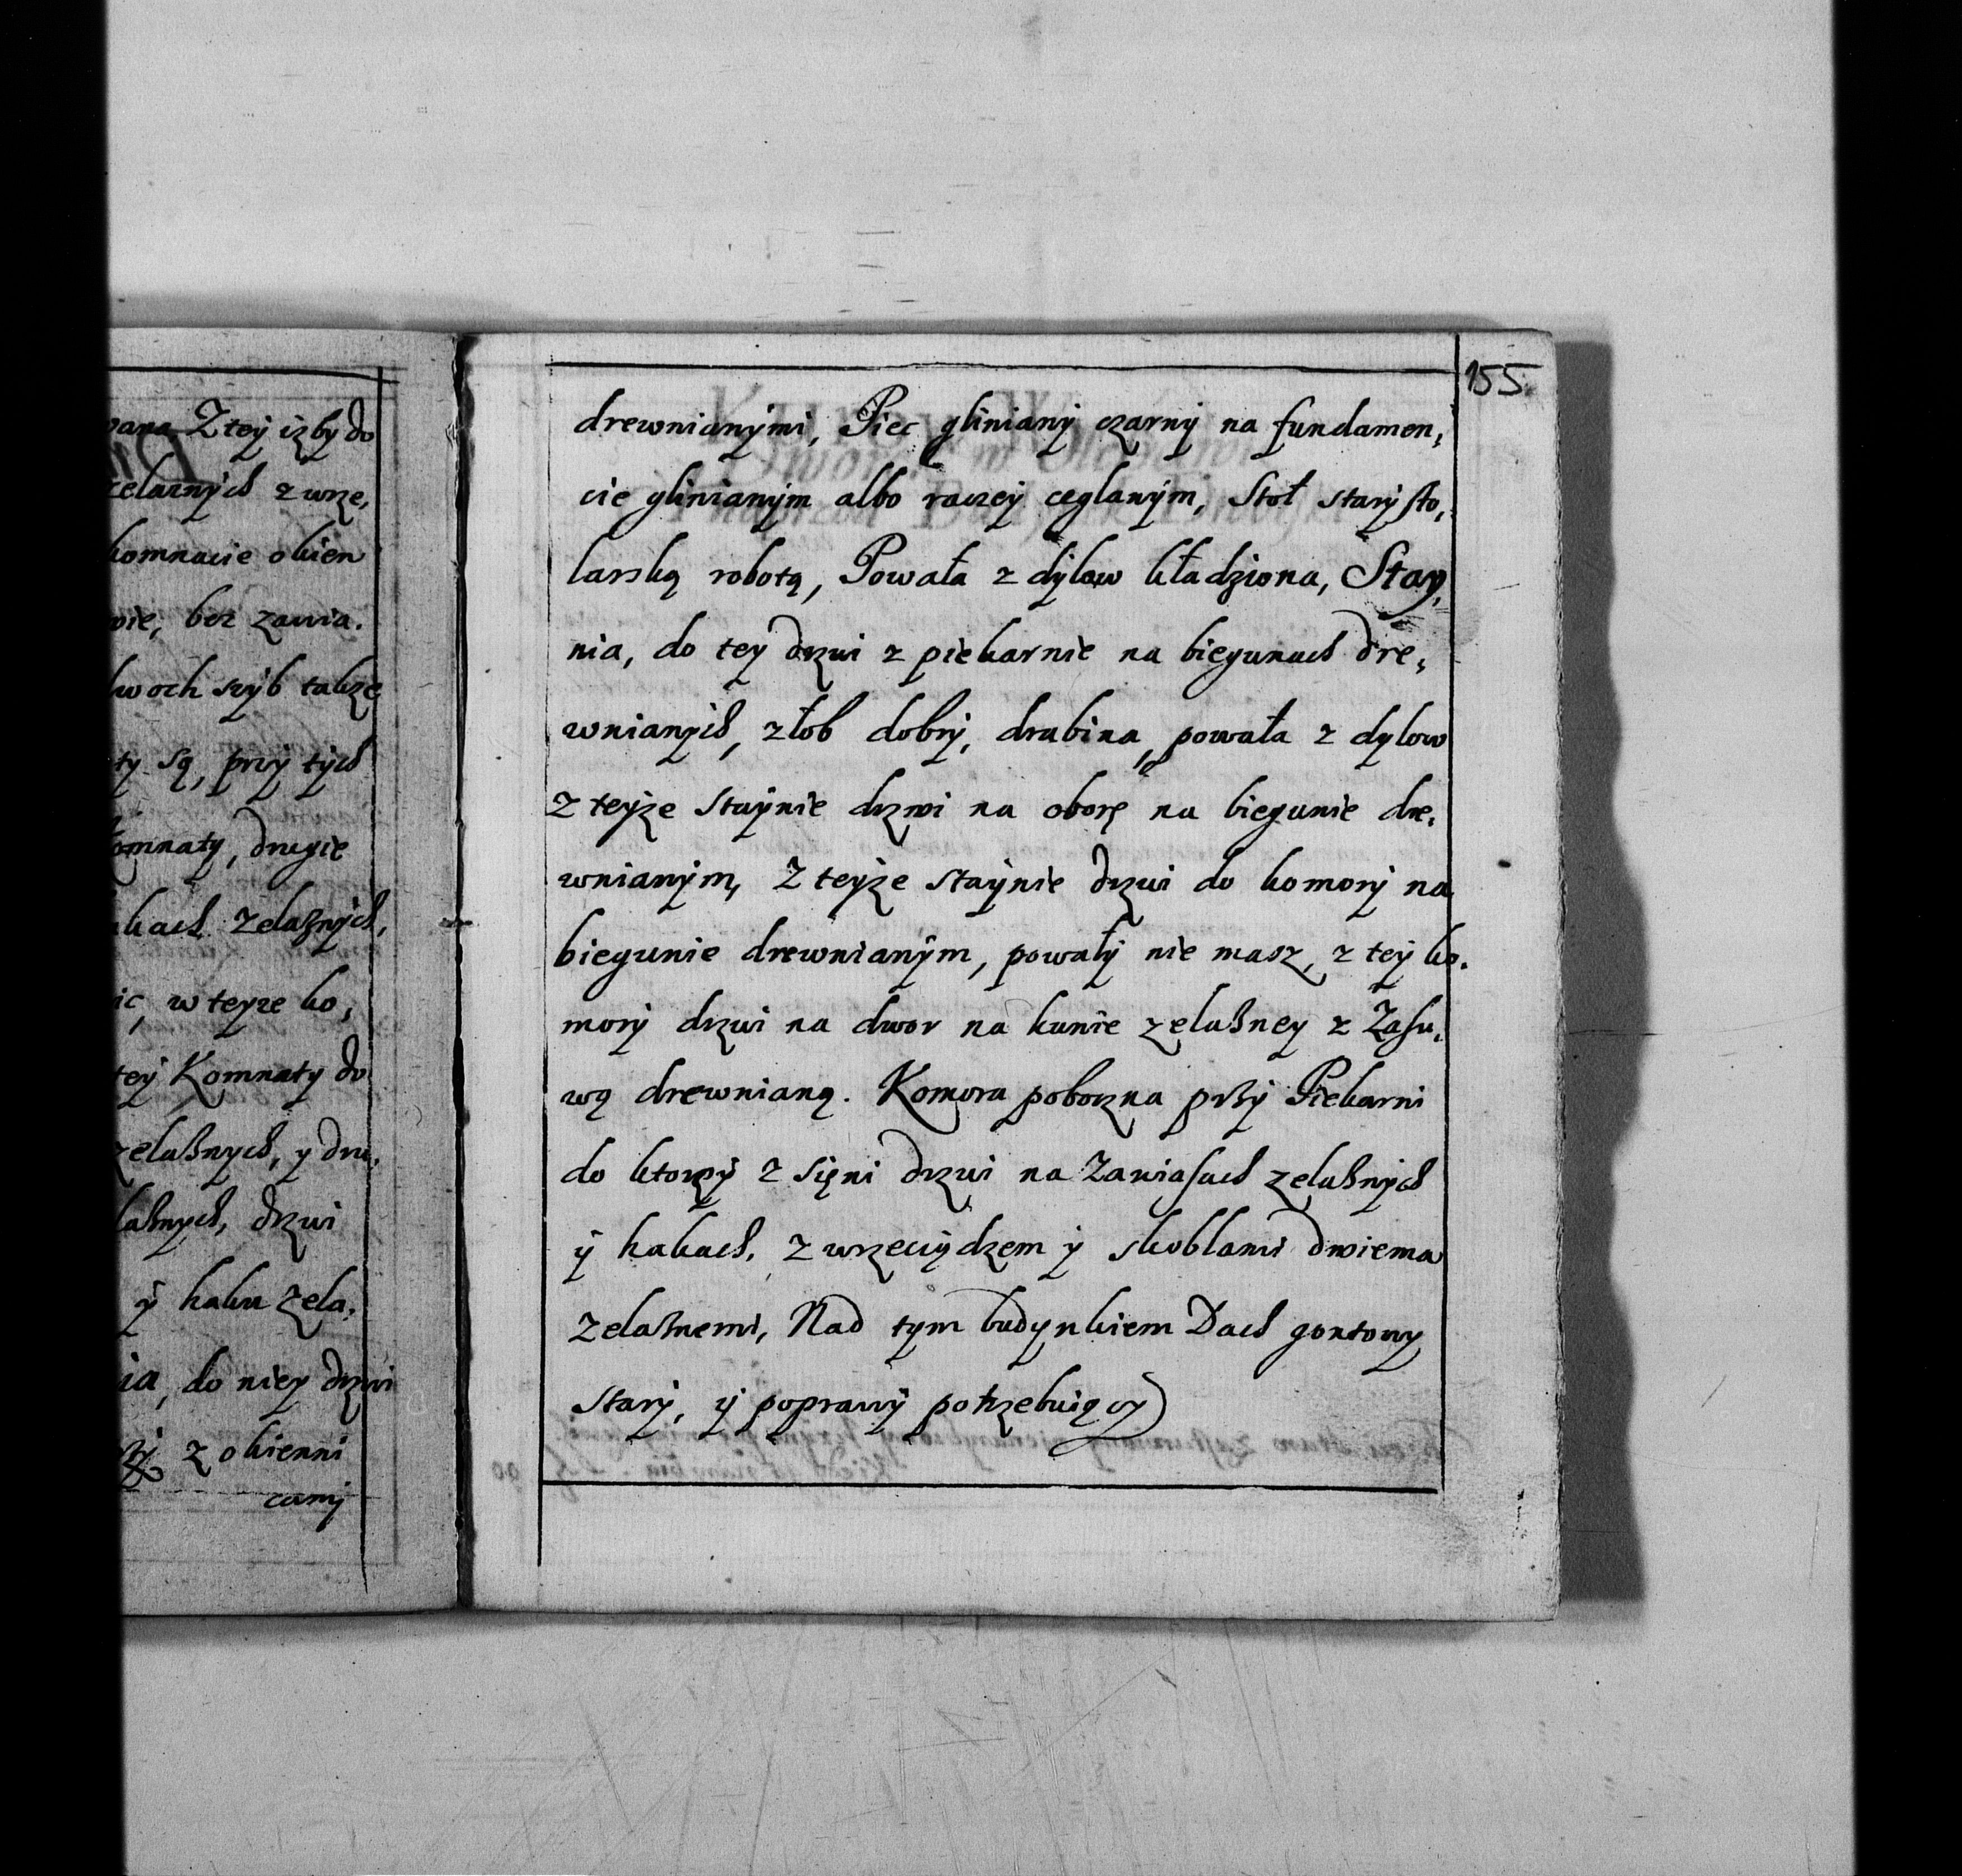 pana Z tey izby do
zelaznych z wrze,
komnacie okien
wie, bez zawia.
dwoch szyb takze
ty są, przy tych
Komnaty, drugie
hakach zelaznych,
ic, w teyze ko,
tey Komnaty do
zelaßnych, y dru,
laßnych, drzwi
ÿ haku zela,
ia, do niey drzwi
z okienni
camÿ
155.
drewnianÿmi, Piec gliniany czarny na fundamen,
cie glinianÿm albo raczeÿ ceglanÿm, Stoł starÿ sto,
larską robotą, Powała z dylow kładziona, Stay,
nia, do tey drzwi z piekarnie na biegunach dre,
wnianÿch, złob dobrÿ, drabina, powała z dylow
z teÿze staÿnie drzwi na oborę na biegunie dre,
wnianÿm, Z teÿze staÿnie drzwi do komorÿ na
biegunie drewnianÿm, powałÿ nie masz, z teÿ ko,
morÿ drzwi na dwor na kunie zelaßney z Zasu,
wą drewnianą. Komora poboczna przÿ Piekarni
do ktoreÿ z sięni drzwi na Zawiasach zelaßnÿch
ÿ hakach, z wrzeciądzem ÿ skoblami dwiema
Zelaßnemi, Nad tym budynkiem Dach gontowy
starÿ, ÿ poprawÿ potrzebuiący